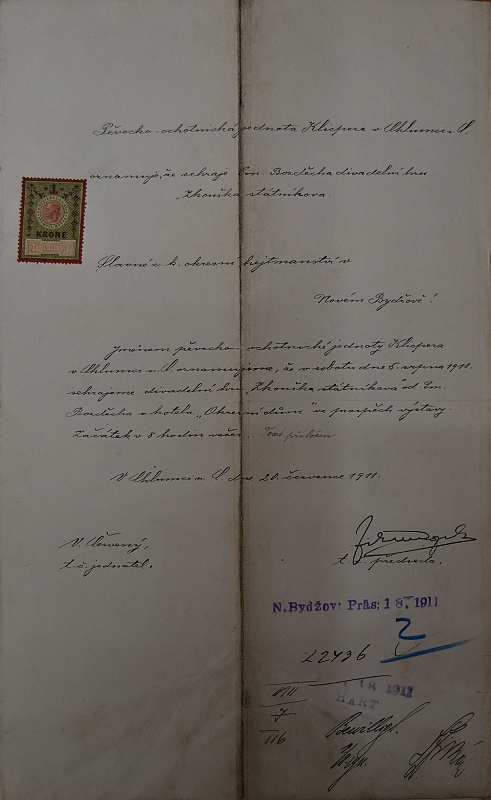 Pěvecko-ochotnická jednota Klicpera v Chlumci n. C.
oznamuje, že sehraje Em. Bozděcha divadelní hru
„Zkouška státníkova.
1
KRONE
Slavné c. k. okresní hejtmanství v
Novém Bydžově!
Jménem pěvecko-ochotnické jednoty Klicpera
v Chlumci n. C. oznamujeme, že v sobotu dne 5. srpna 1911.
sehrajeme divadelní hru „Zkouška státníkova" od Em.
Bozděcha v hotelu „Okresní dům" ve prospěch výstavy.
Začátek v 8 hodin večer. Text přiložen
V Chlumci n. C. dne 20. července 1911.
V. Červený,
t. č. jednatel.
t. č. předseda.
N. Bydžov: Präs; 1 8. 1911
2
22436
VIII
7
116
1 8 1911
HART
Bewillgt.